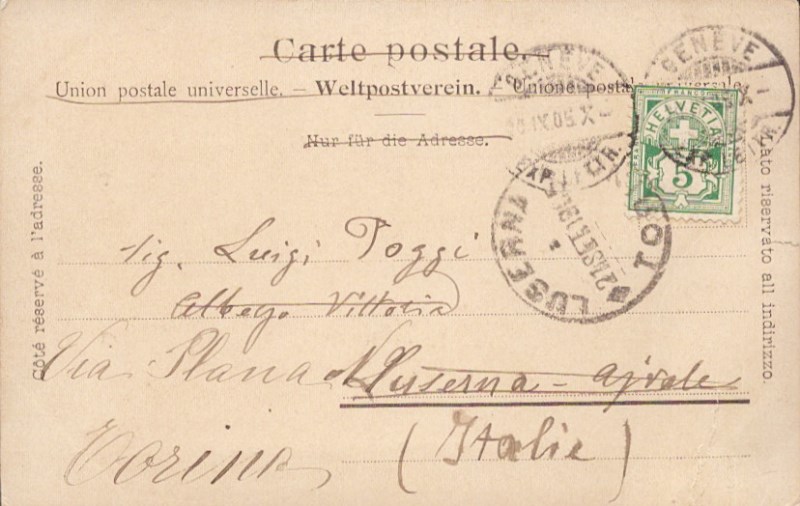 Carte postale.
Union postale universelle. – Weltpostverein. – Unione postale universale.
Nur für die Adresse.
Côté réservé à l'adresse.
Lato riservato all indirizzo.
GENÈVE
GENÈVE
FRANCO
HELVETIA
5
LUSERNA
TO
Sig. Luigi Poggi
Albergo Vittoria
Via Plana
Luserna – 
(Italie)
Torino